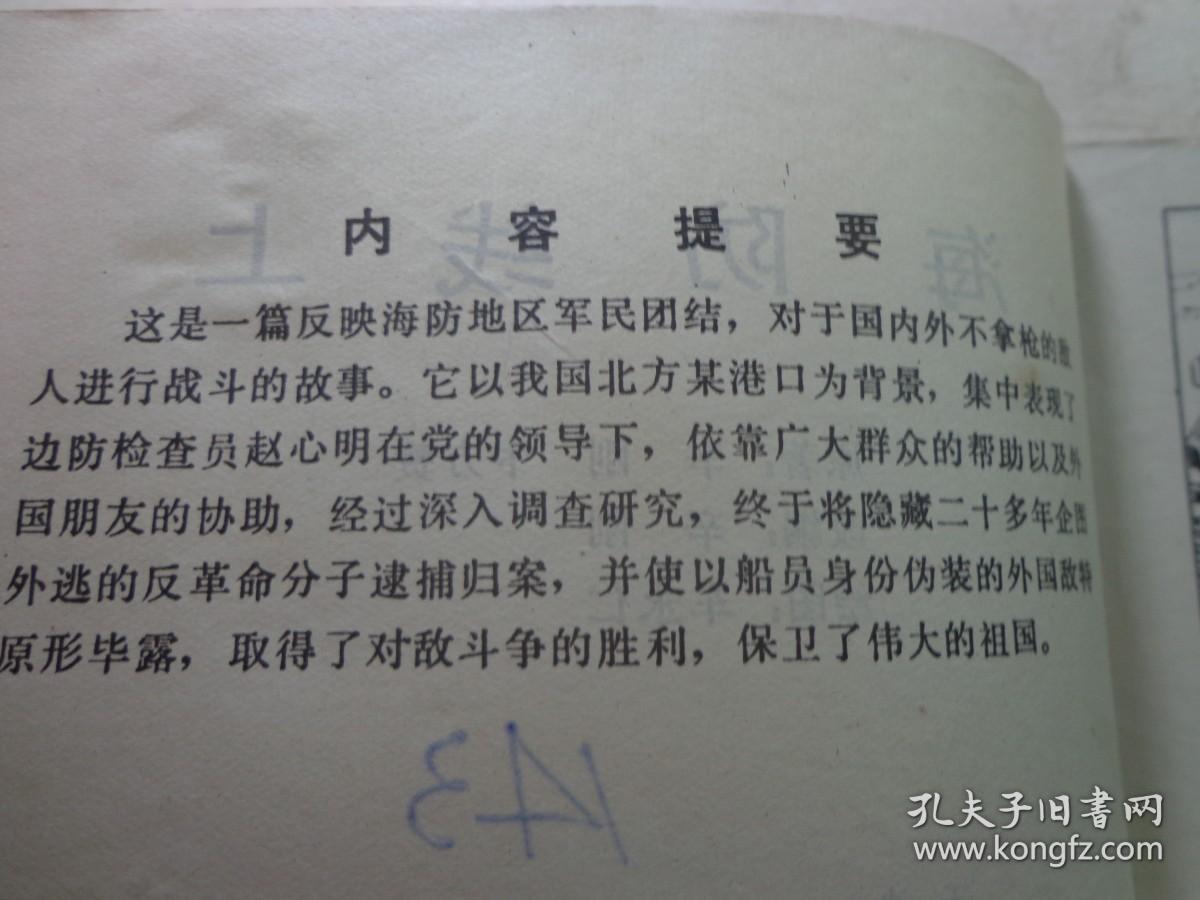 内容提要
这是一篇反映海防地区军民团结，对于国内外不拿枪的敌
人进行战斗的故事。它以我国北方某港口为背景，集中表现了
边防检查员赵心明在党的领导下，依靠广大群众的帮助以及外
国朋友的协助，经过深入调查研究，终于将隐藏二十多年企图
外逃的反革命分子逮捕归案，并使以船员身份伪装的外国敌特
原形毕露，取得了对敌斗争的胜利，保卫了伟大的祖国。
海防线上
143
孔夫子旧书网
www.kongfz.com